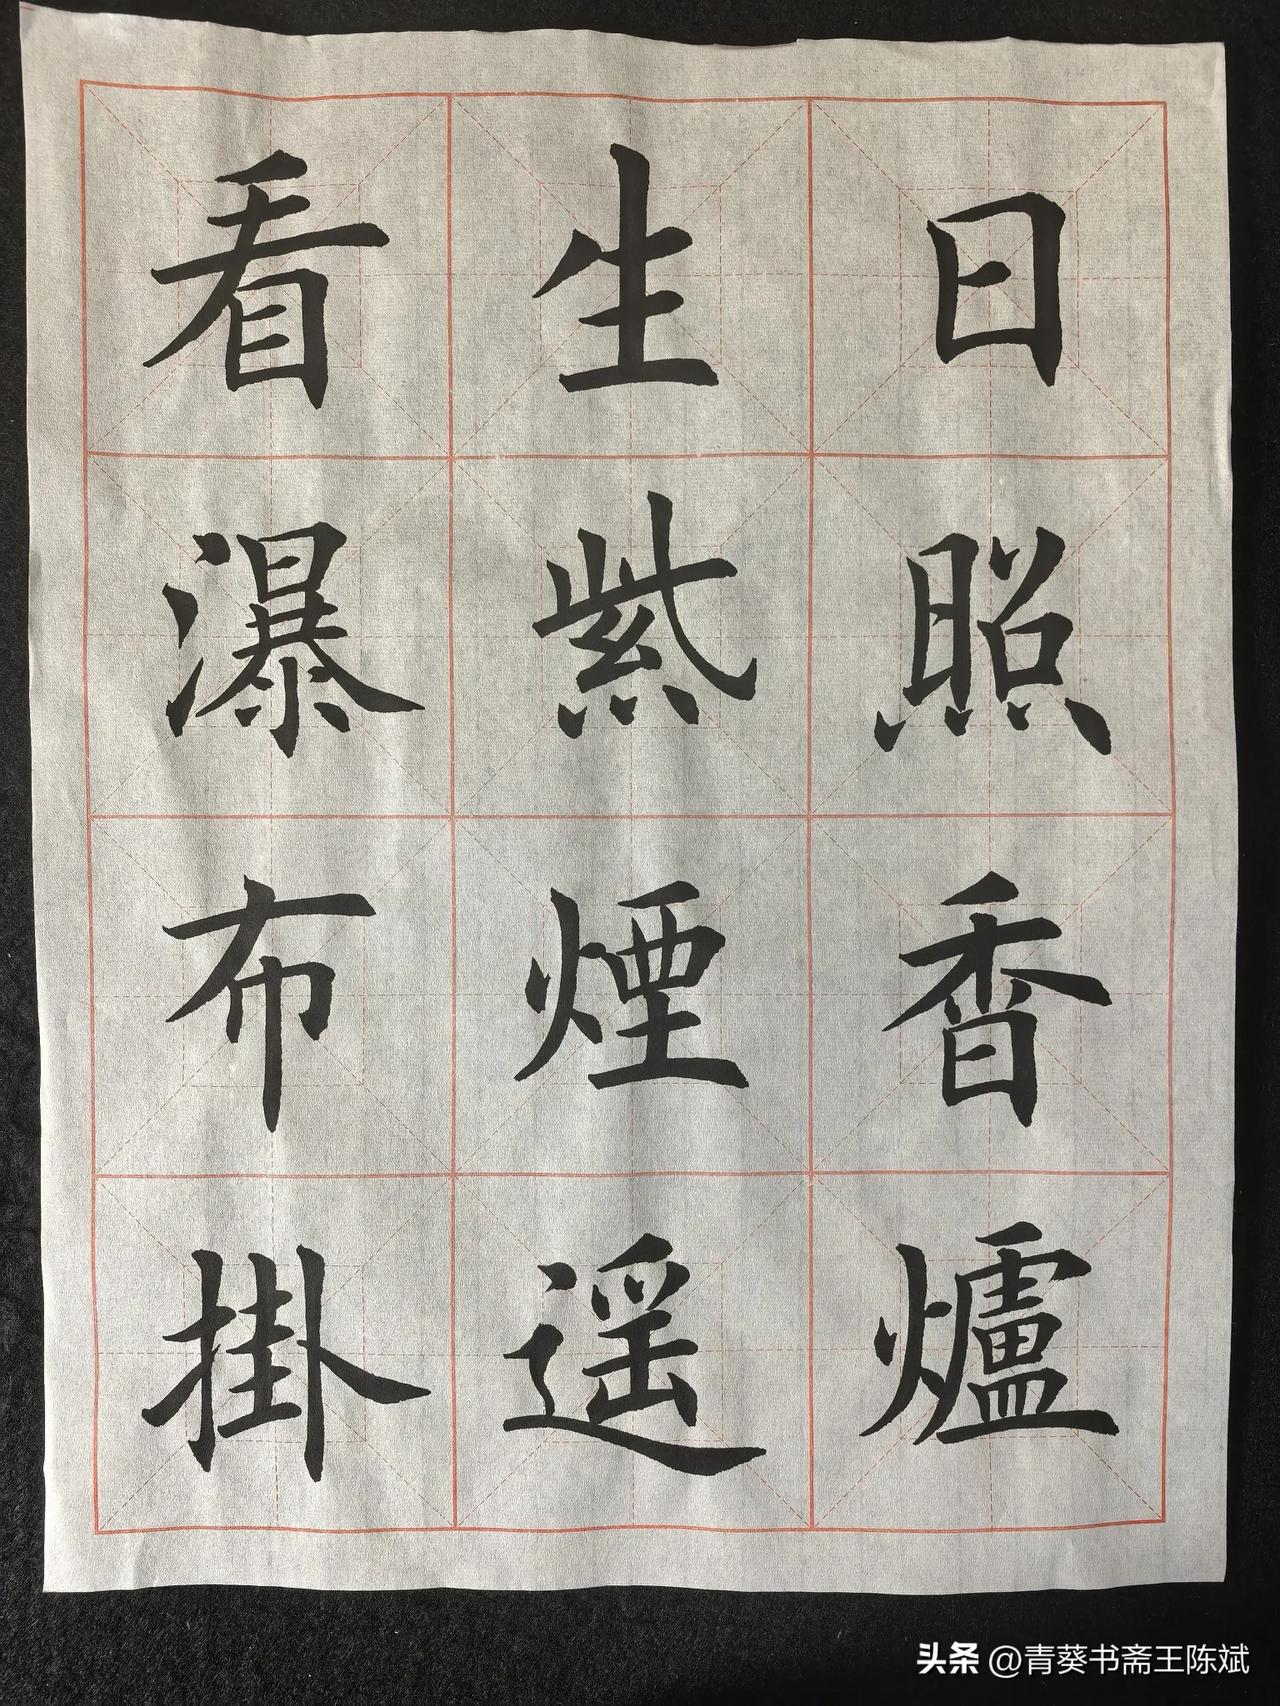 日照香爐
生紫煙遥
看瀑布掛
头条 @青葵书斋王陈斌